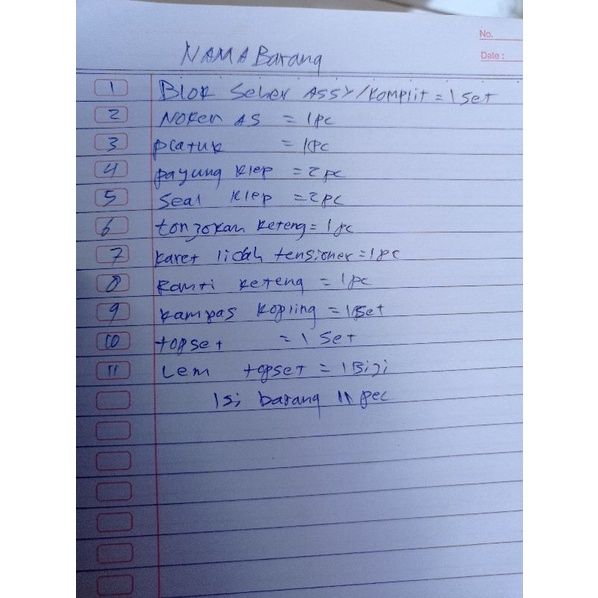 No.
Date :
NAMA Barang
1 Blok Seher ASSY/Komplit = 1 Set
2 Noken AS = 1 pc
3 pLatuk = 1 pc
4 payung Klep = 2 pc
5 Seal Klep = 2 pc
6 tonjokan Keteng = 1 pc
7 Karet lidah tensioner = 1 pc
8 Ranti keteng = 1 pc
9 kampas kopling = 1 Set
10 topset = 1 Set
11 Lem topset = 1 Biji
isi barang 11 pec